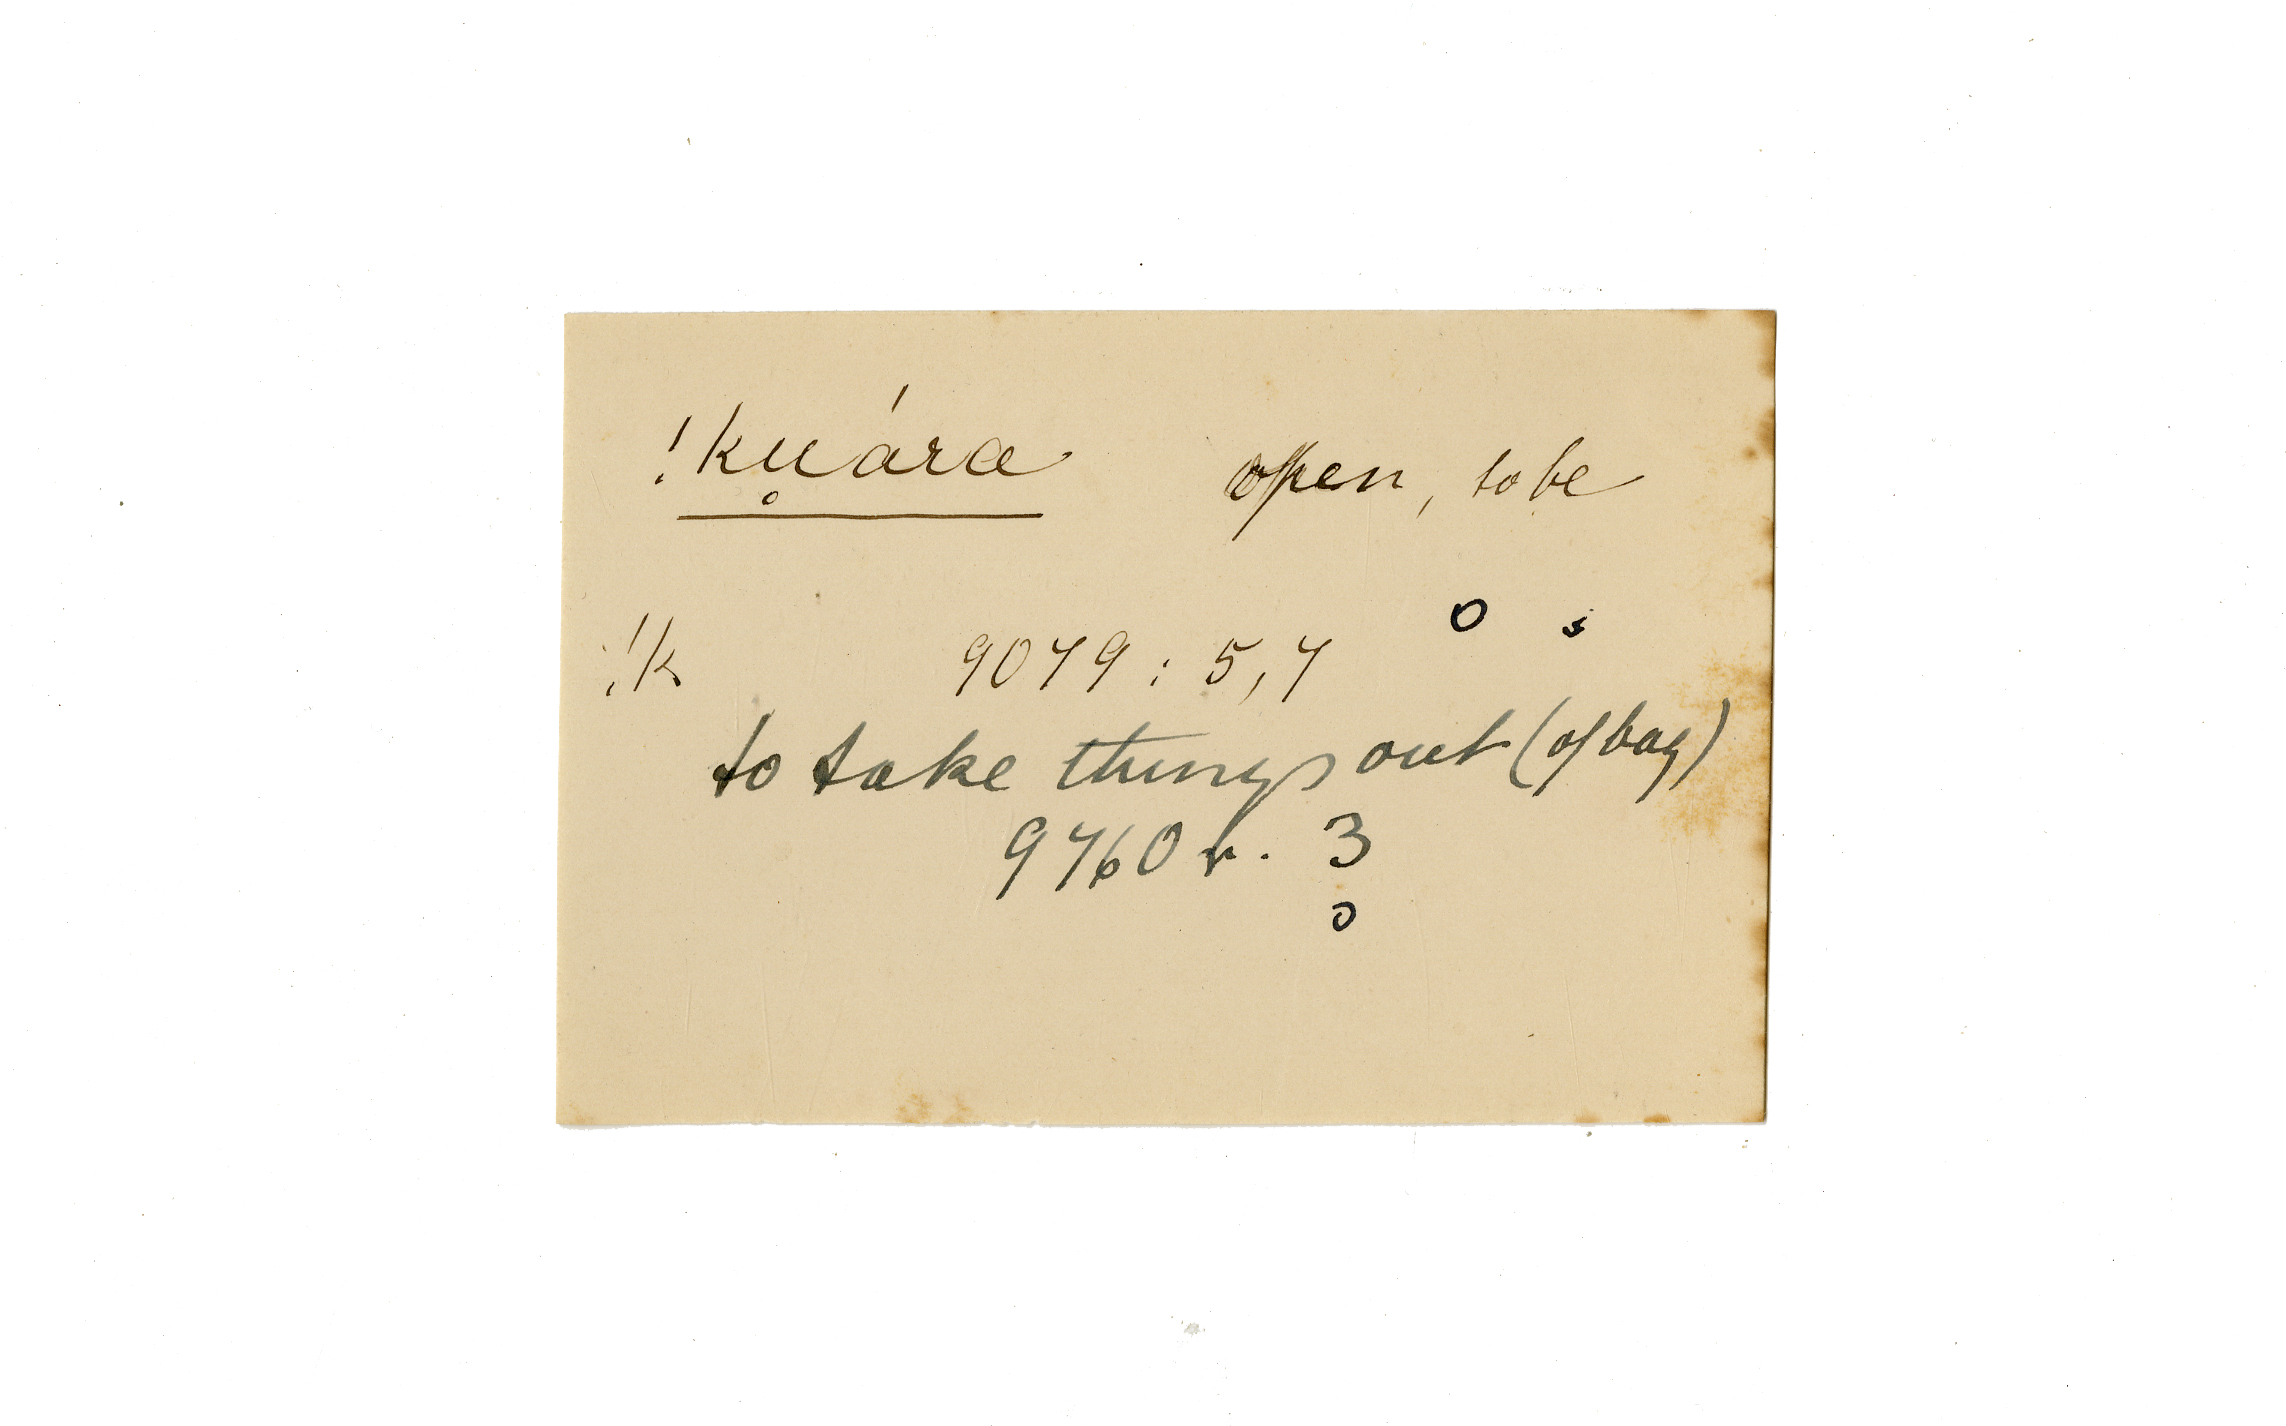 !ku̥ára open, to be
!k 9079 : 5,7 o s
to take things out (of bag)
9760 r. 3
o